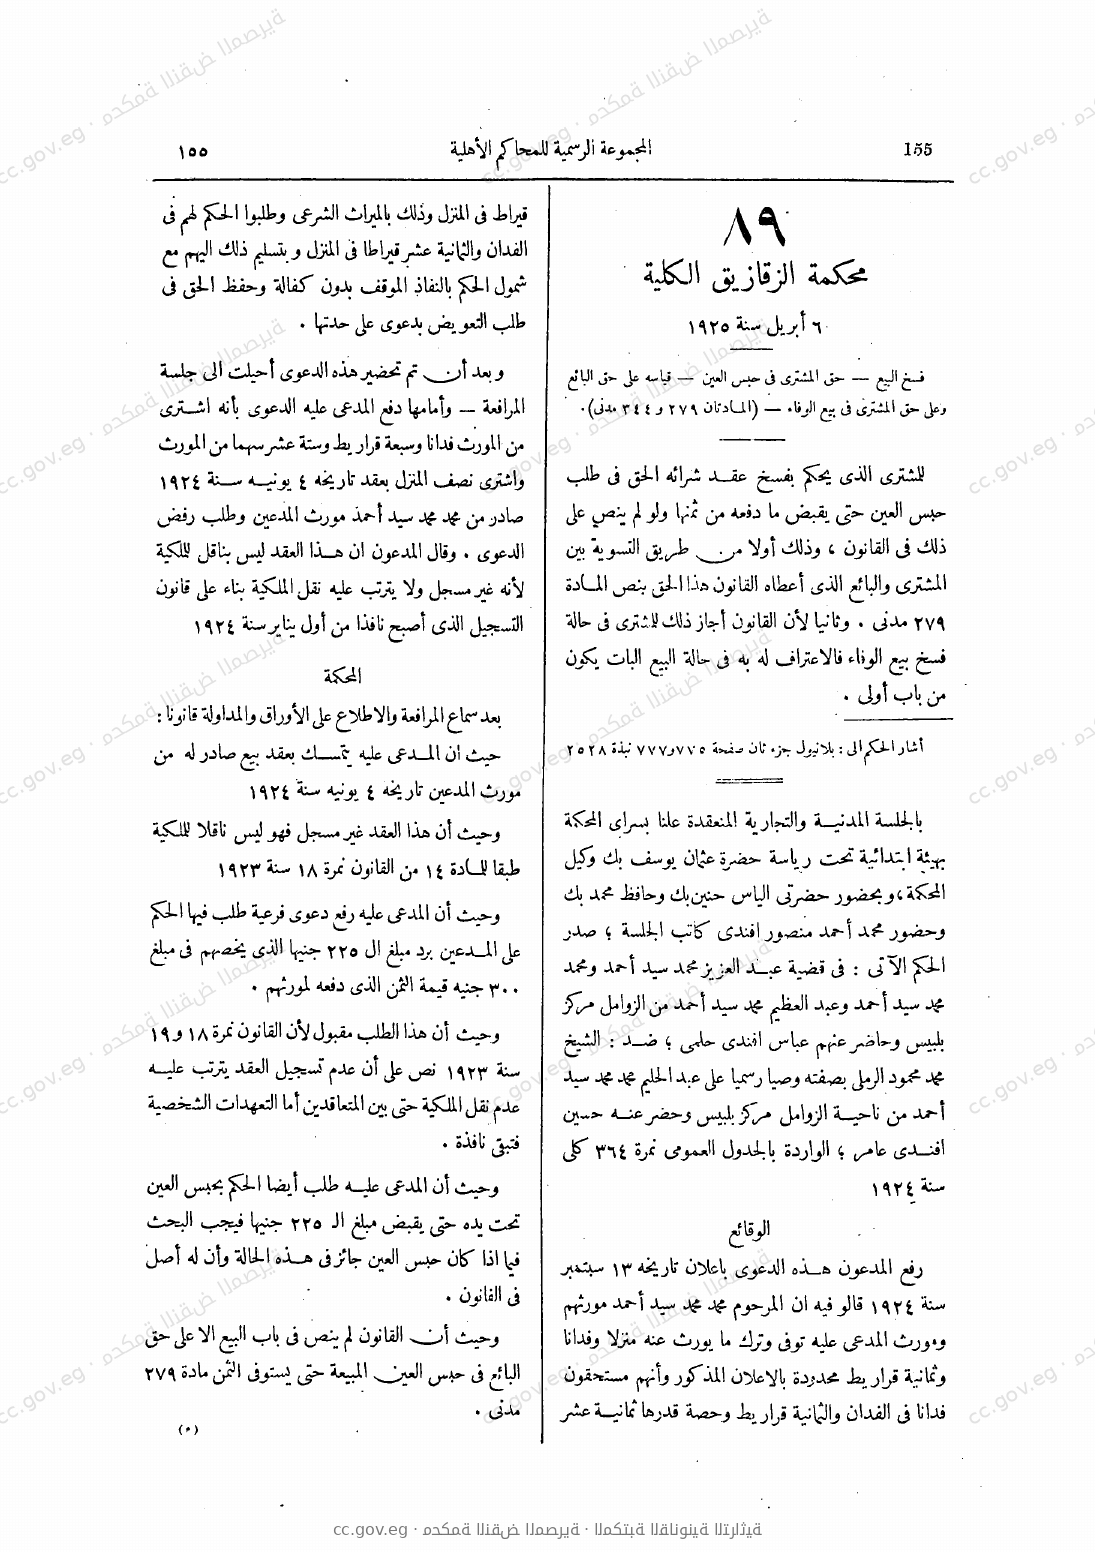 155
المجموعة الرسمية للمحاكم الأهلية
١٥٥
٨٩
محكمة الزقازيق الكلية
٦ أبريل سنة ١٩٢٥
فسخ البيع — حق المشترى فى حبس العين — قياسه على حق البائع
وعلى حق المشترى فى بيع الوفاء — (المادتان ٢٧٩ و ٣٤٤ مدنى).
للمشترى الذى يحكم بفسخ عقد شرائه الحق فى طلب
حبس العين حتى يقبض ما دفعه من ثمنها ولو لم ينص على
ذلك فى القانون ، وذلك أولا من طريق التسوية بين
المشترى والبائع الذى أعطاه القانون هذا الحق بنص المادة
٢٧٩ مدنى . وثانيا لأن القانون أجاز ذلك للمشترى فى حالة
فسخ بيع الوفاء فالاعتراف له به فى حالة البيع البات يكون
من باب أولى .
أشار الحكم الى : بلانيول جزء ثان صفحة ٧٧٥ و٧٧٧ نبذة ٢٥٢٨
بالجلسة المدنية والتجارية المنعقدة علنا بسراى المحكمة
بهيئة ابتدائية تحت رياسة حضرة عثمان يوسف بك وكيل
المحكمة، وبحضور حضرتى الياس حنين بك وحافظ محمد بك
وحضور محمد أحمد منصور افندى كاتب الجلسة ؛ صدر
الحكم الآتى : فى قضية عبد العزيز محمد سيد أحمد ومحمد
محمد سيد أحمد وعبد العظيم محمد سيد أحمد من الزوامل مركز
بلبيس وحاضر عنهم عباس افندى حلمى ؛ ضد : الشيخ
محمد محمود الرملى بصفته وصيا رسميا على عبد الحليم محمد محمد سيد
أحمد من ناحية الزوامل مركز بلبيس وحضر عنه حسين
افندى عامر ؛ الواردة بالجدول العمومى نمرة ٣٦٤ كلى
سنة ١٩٢٤
الوقائع
رفع المدعون هذه الدعوى باعلان تاريخه ١٣ سبتمبر
سنة ١٩٢٤ قالو فيه ان المرحوم محمد محمد سيد أحمد مورثهم
ومورث المدعى عليه توفى وترك ما يورث عنه منزلا وفدانا
وثمانية قراريط محدودة بالاعلان المذكور وأنهم مستحقون
فدانا فى الفدان والثمانية قراريط وحصة قدرها ثمانية عشر
قيراط فى المنزل وذلك بالميراث الشرعى وطلبوا الحكم لهم فى
الفدان والثمانية عشر قيراطا فى المنزل وبتسليم ذلك اليهم مع
شمول الحكم بالنفاذ الموقف بدون كفالة وحفظ الحق فى
طلب التعويض بدعوى على حدتها .
وبعد أن تم تحضير هذه الدعوى أحيلت الى جلسة
المرافعة — وأمامها دفع المدعى عليه الدعوى بأنه اشترى
من المورث فدانا وسبعة قراريط وستة عشر سهما من المورث
واشترى نصف المنزل بعقد تاريخه ٤ يونيه سنة ١٩٢٤
صادر من محمد محمد سيد أحمد مورث المدعين وطلب رفض
الدعوى . وقال المدعون ان هذا العقد ليس بناقل للملكية
لأنه غير مسجل ولا يترتب عليه نقل الملكية بناء على قانون
التسجيل الذى أصبح نافذا من أول يناير سنة ١٩٢٤
المحكمة
بعد سماع المرافعة والاطلاع على الأوراق والمداولة قانونا :
حيث ان المدعى عليه يتمسك بعقد بيع صادر له من
مورث المدعين تاريخه ٤ يونيه سنة ١٩٢٤
وحيث أن هذا العقد غير مسجل فهو ليس ناقلا للملكية
طبقا للمادة ١٤ من القانون نمرة ١٨ سنة ١٩٢٣
وحيث أن المدعى عليه رفع دعوى فرعية طلب فيها الحكم
على المدعين برد مبلغ ال ٢٢٥ جنيها الذى يخصهم فى مبلغ
٣٠٠ جنيه قيمة الثمن الذى دفعه لمورثهم .
وحيث أن هذا الطلب مقبول لأن القانون نمرة ١٨ و ١٩
سنة ١٩٢٣ نص على أن عدم تسجيل العقد يترتب عليه
عدم نقل الملكية حتى بين المتعاقدين أما التعهدات الشخصية
فتبقى نافذة .
وحيث أن المدعى عليه طلب أيضا الحكم بحبس العين
تحت يده حتى يقبض مبلغ الـ ٢٢٥ جنيها فيجب البحث
فيما اذا كان حبس العين جائز فى هذه الحالة وأن له أصل
فى القانون .
وحيث أن القانون لم ينص فى باب البيع الا على حق
البائع فى حبس العين المبيعة حتى يستوفى الثمن مادة ٢٧٩
مدنى .
(٥)
cc.gov.eg · محكمة النقض المصرية · المكتبة القانونية التراثية